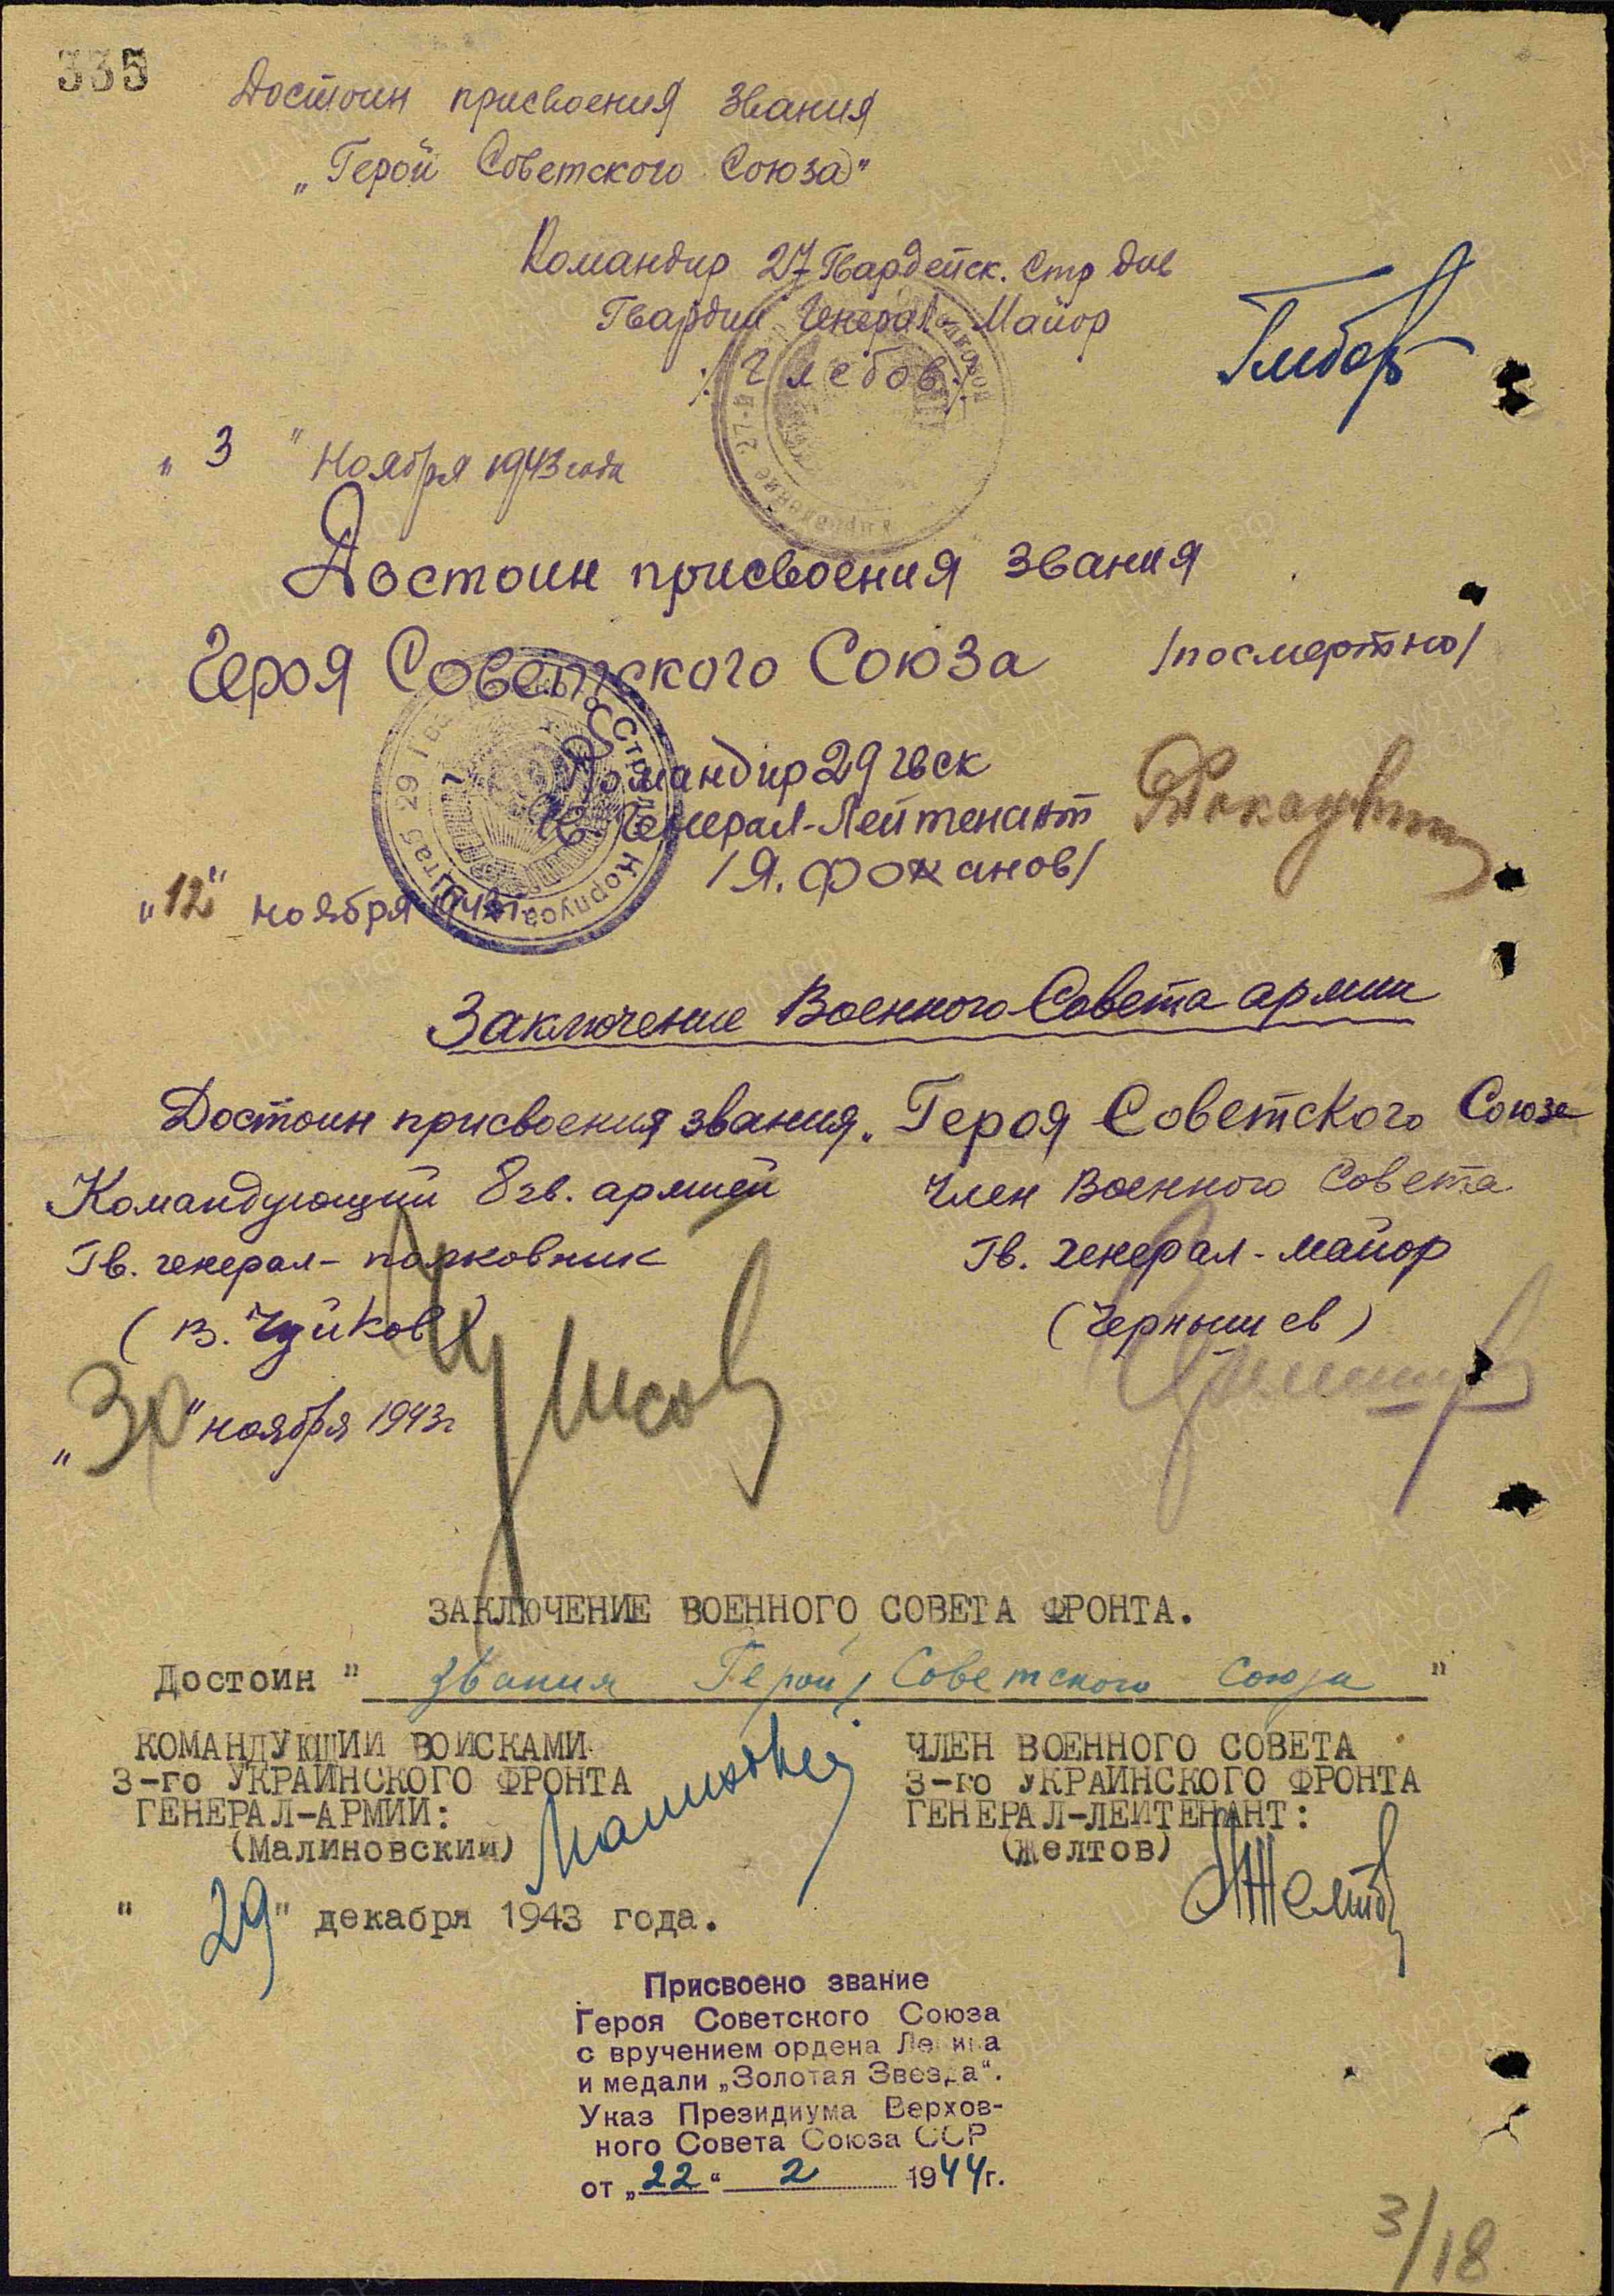 335
Достоин присвоения звания
„Герой Советского Союза"
Командир 27 Гвардейск. Стр див
Гвардии Генерал-Майор
/Глебов/
Глебов
„3" Ноября 1943 года
Достоин присвоения звания
Героя Советского Союза /посмертно/
Командир 29 гвск
Гв. Генерал-Лейтенант
/Я. Фоканов/
„12" ноября 1943г.
Заключение Военного Совета армии
Достоин присвоения звания „Героя Советского Союза
Командующий 8 гв. армией
Гв. генерал-полковник
(В. Чуйков)
„30" ноября 1943г
Член Военного Совета
Гв. генерал-майор
(Чернышев)
ЗАКЛЮЧЕНИЕ ВОЕННОГО СОВЕТА ФРОНТА.
Достоин " звания Герой Советского Союза "
КОМАНДУЮЩИЙ ВОЙСКАМИ
3-го УКРАИНСКОГО ФРОНТА
ГЕНЕРАЛ-АРМИИ:
(Малиновский)
ЧЛЕН ВОЕННОГО СОВЕТА
3-го УКРАИНСКОГО ФРОНТА
ГЕНЕРАЛ-ЛЕЙТЕНАНТ:
(Желтов)
" 29 " декабря 1943 года.
Присвоено звание
Героя Советского Союза
с вручением ордена Ленина
и медали „Золотая Звезда".
Указ Президиума Верхов-
ного Совета Союза ССР
от „22" 2 1944г.
3/18